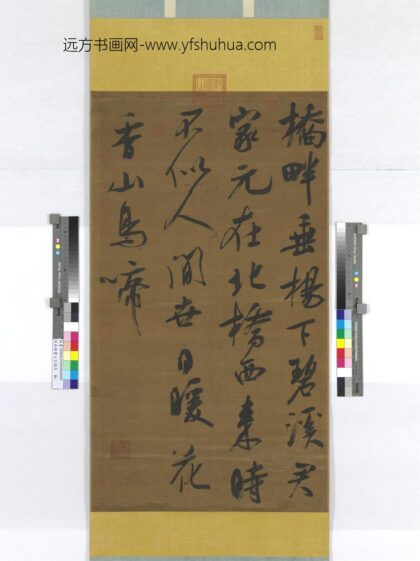 远方书画网-www.yfshuhua.com
橋畔垂楊下碧溪君
家元在北橋西來時
不似人間世日暖花
香山鳥啼